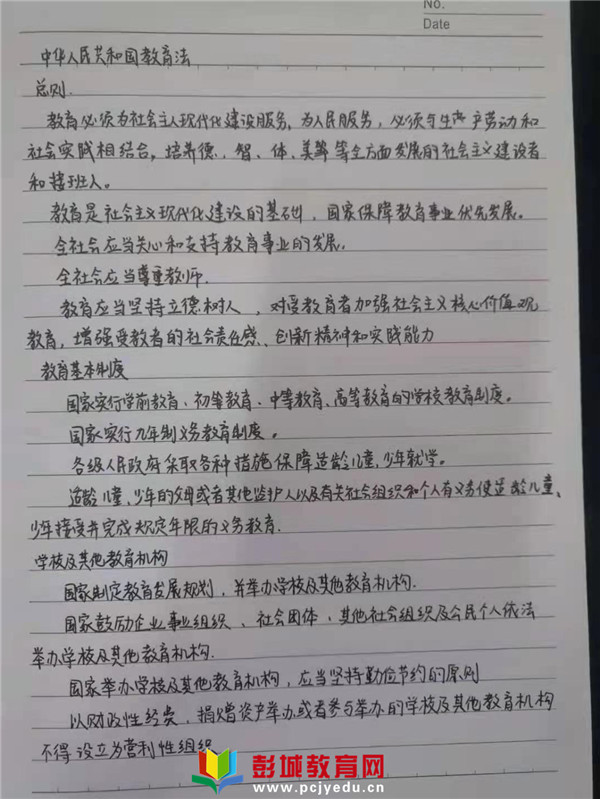 No.
Date
中华人民共和国教育法
总则
教育必须为社会主义现代化建设服务,为人民服务,必须与生产劳动和
社会实践相结合,培养德、智、体、美等全方面发展的社会主义建设者
和接班人。
教育是社会主义现代化建设的基础,国家保障教育事业优先发展。
全社会应当关心和支持教育事业的发展.
全社会应当尊重教师.
教育应当坚持立德树人,对受教育者加强社会主义核心价值观
教育,增强受教者的社会责任感、创新精神和实践能力
教育基本制度
国家实行学前教育、初等教育、中等教育、高等教育的学校教育制度。
国家实行九年制义务教育制度。
各级人民政府采取各种措施保障适龄儿童,少年就学。
适龄儿童,少年的父母或者其他监护人以及有关社会组织和个人有义务使适龄儿童、
少年接受并完成规定年限的义务教育.
学校及其他教育机构
国家制定教育发展规划,并举办学校及其他教育机构.
国家鼓励企业事业组织、社会团体、其他社会组织及公民个人依法
举办学校及其他教育机构.
国家举办学校及其他教育机构,应当坚持勤俭节约的原则
以财政性经费,捐赠资产举办或者参与举办的学校及其他教育机构
不得设立为营利性组织
彭城教育网
www.pcjyedu.cn